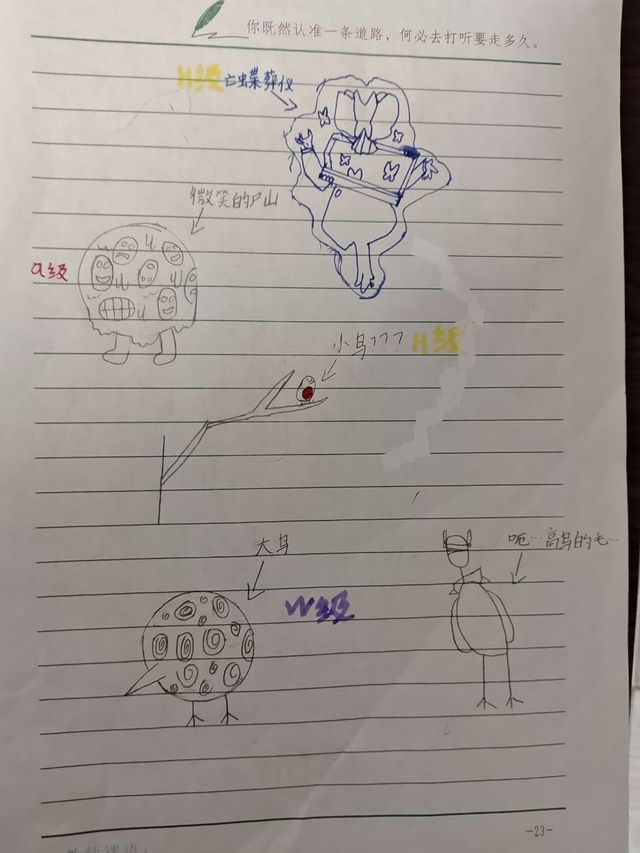 你既然认准一条道路，何必去打听要走多久。
H级 亡蝶葬仪
微笑的尸山
a级
小鸟??? H级
大鸟
呃…高鸟的毛…
W级
-23-